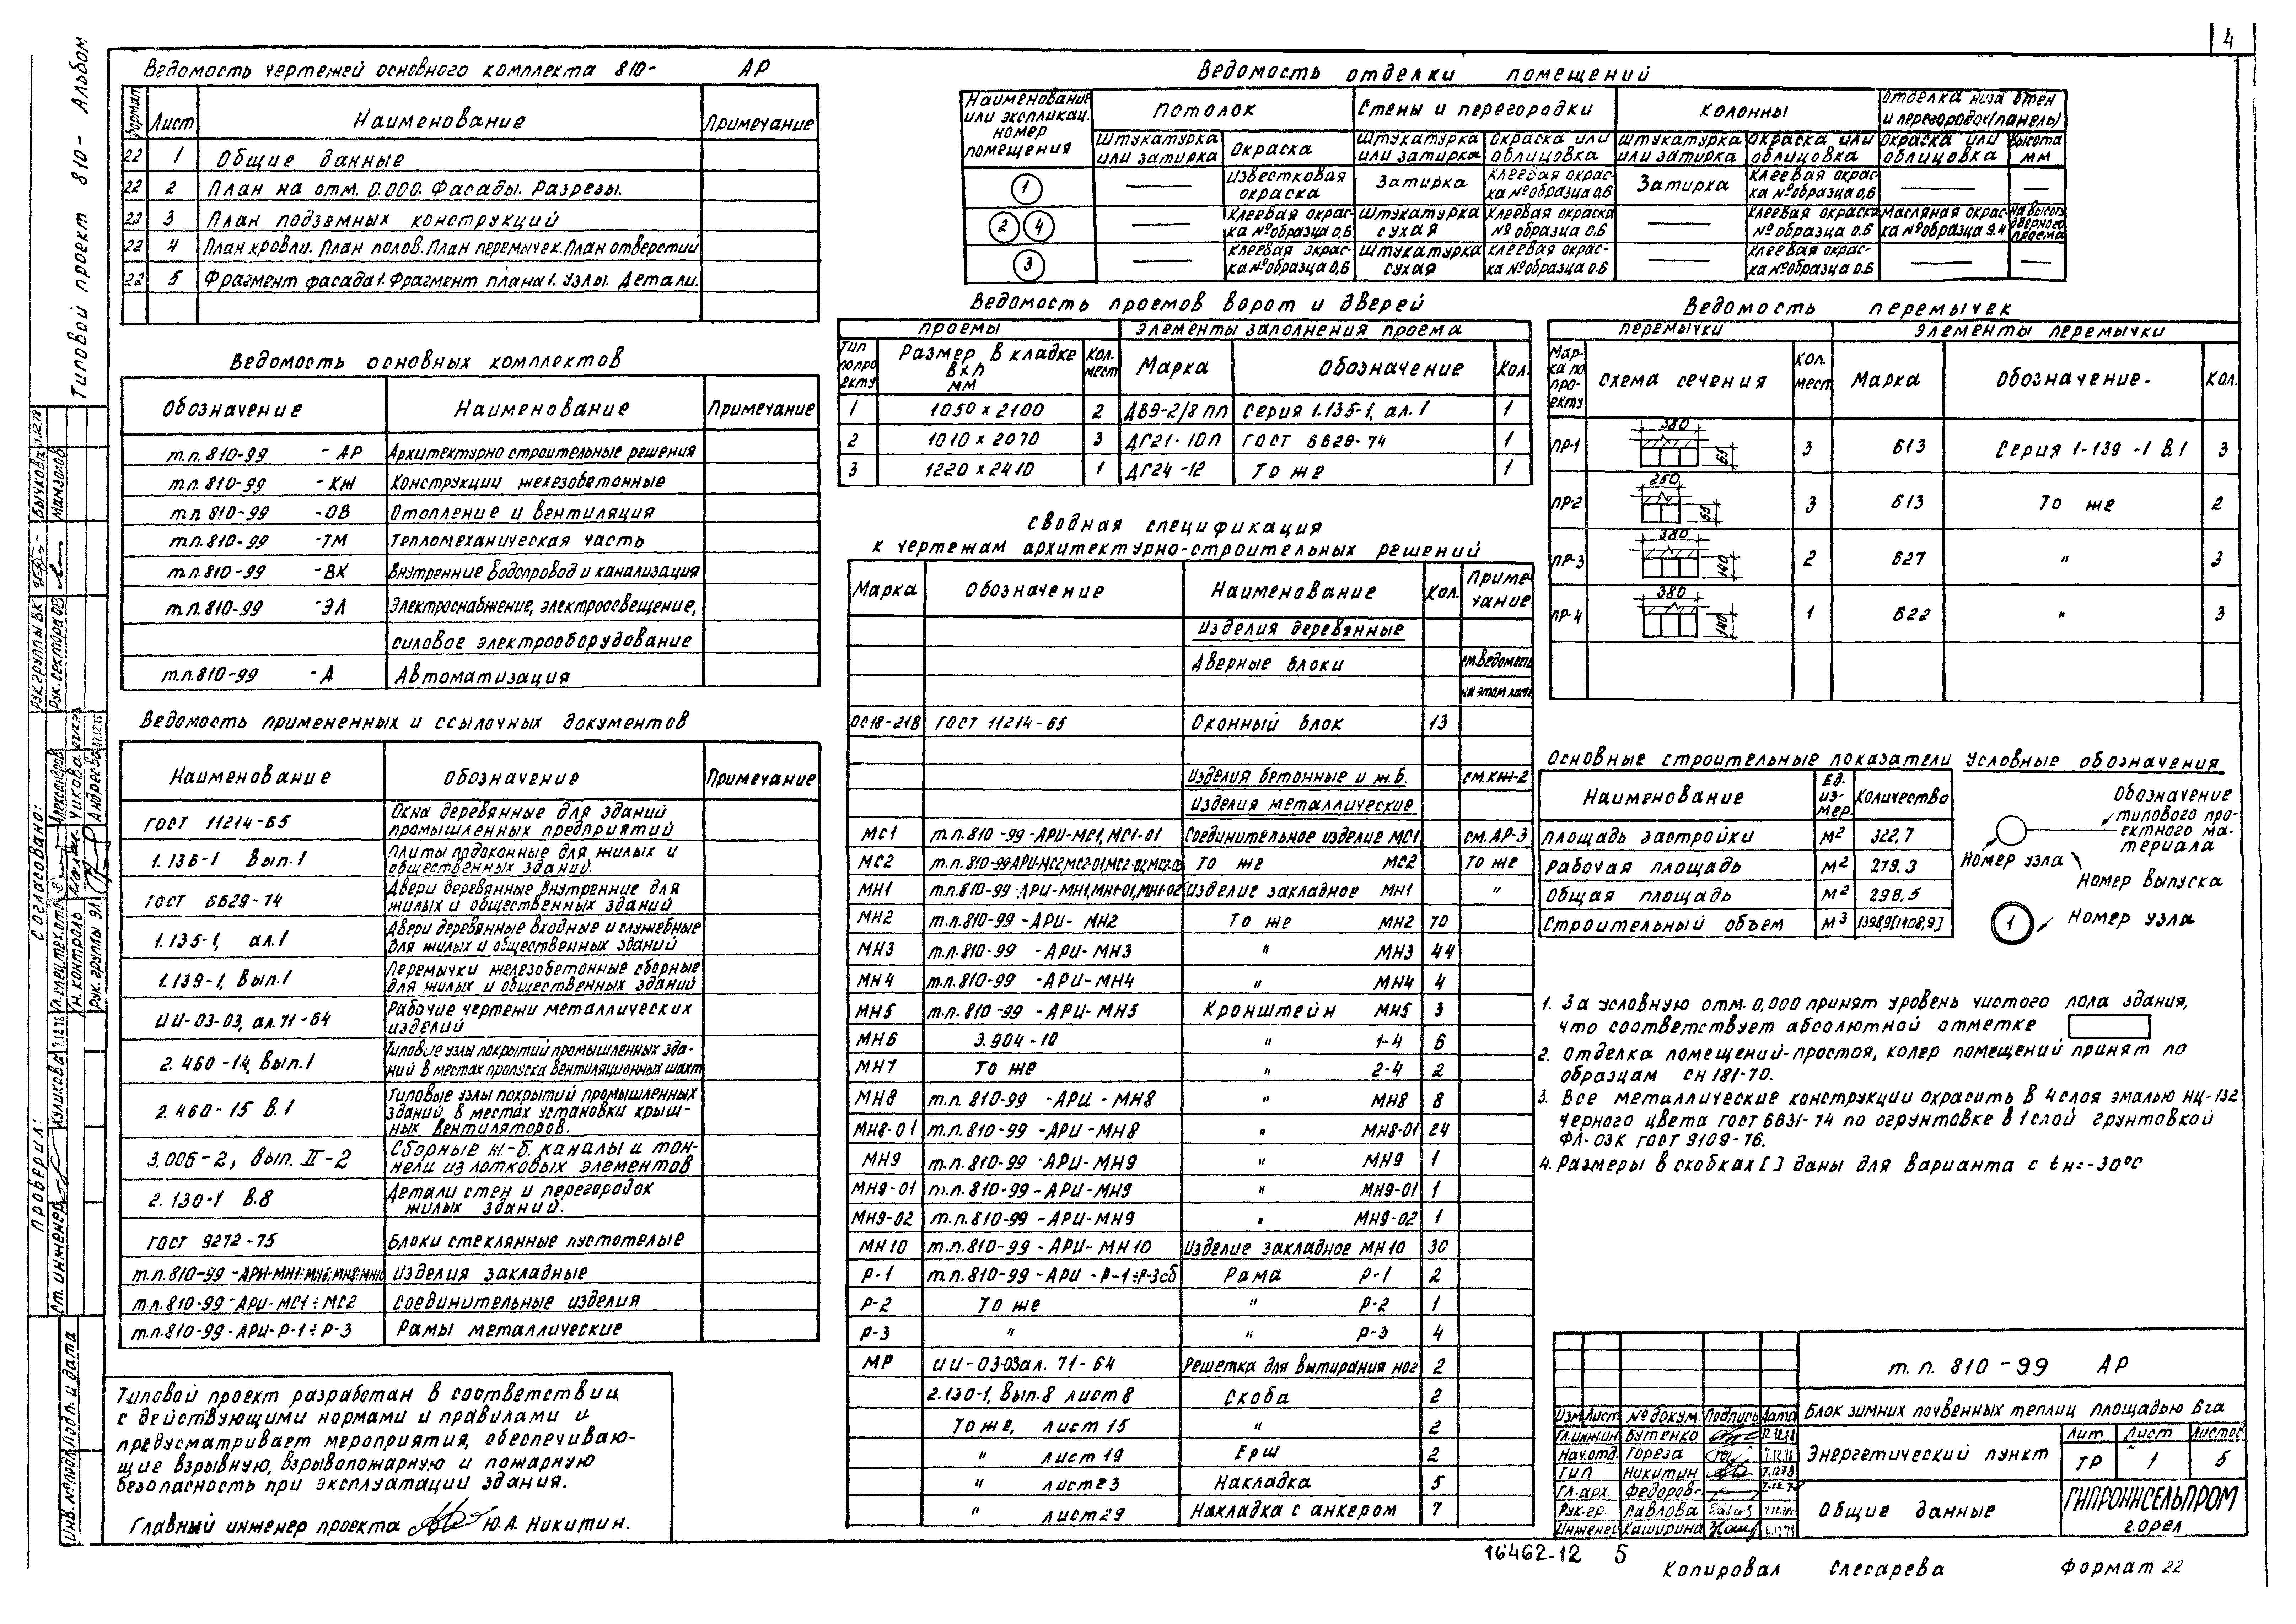 4
Типовой проект 810- Альбом
Ведомость чертежей основного комплекта 810- АР
Формат Лист Наименование Примечание
22 1 Общие данные
22 2 План на отм. 0.000. Фасады. Разрезы.
22 3 План подземных конструкций
22 4 План кровли. План полов. План перемычек. План отверстий
22 5 Фрагмент фасада 1. Фрагмент плана 1. Узлы. Детали.
Ведомость основных комплектов
Обозначение Наименование Примечание
т.п. 810-99 -АР Архитектурно строительные решения
т.п. 810-99 -КЖ Конструкции железобетонные
т.п. 810-99 -ОВ Отопление и вентиляция
т.п. 810-99 -ТМ Тепломеханическая часть
т.п. 810-99 -ВК Внутренние водопровод и канализация
т.п. 810-99 -ЭЛ Электроснабжение, электроосвещение,
силовое электрооборудование
т.п. 810-99 -А Автоматизация
Ведомость примененных и ссылочных документов
Наименование Обозначение Примечание
ГОСТ 11214-65 Окна деревянные для зданий
промышленных предприятий
1.136-1 Вып.1 Плиты подоконные для жилых и
общественных зданий.
ГОСТ 6629-74 Двери деревянные внутренние для
жилых и общественных зданий
1.135-1, ал.1 Двери деревянные входные и служебные
для жилых и общественных зданий
1.139-1, Вып.1 Перемычки железобетонные сборные
для жилых и общественных зданий
ИИ-03-03, ал.71-64 Рабочие чертежи металлических
изделий
2.460-14, Вып.1 Типовые узлы покрытий промышленных зда-
ний в местах пропуска вентиляционных шахт
2.460-15 В.1 Типовые узлы покрытий промышленных
зданий в местах установки крыш-
ных вентиляторов.
3.006-2, Вып. II-2 Сборные ж-б. каналы и тон-
нели из лотковых элементов
2.130-1 В.8 Детали стен и перегородок
жилых зданий.
ГОСТ 9272-75 Блоки стеклянные пустотелые
т.п. 810-99 -АРИ-МН1÷МН6; МН8÷МН10 Изделия закладные
т.п. 810-99 -АРИ-МС1÷МС2 Соединительные изделия
т.п. 810-99-АРИ-Р-1÷Р-3 Рамы металлические
Типовой проект разработан в соответствии
с действующими нормами и правилами и
предусматривает мероприятия, обеспечиваю-
щие взрывную, взрывопожарную и пожарную
безопасность при эксплуатации здания.
Главный инженер проекта Ю.А. Никитин.
Ведомость отделки помещений
Наименование или экспликац. номер помещения Потолок Стены и перегородки Колонны Отделка низа стен и перегородок (панель)
Штукатурка или затирка Окраска Штукатурка или затирка Окраска или облицовка Штукатурка или затирка Окраска или облицовка Окраска или облицовка Высота мм
1 — Известковая окраска Затирка Клеевая окраска №образца 0,6 Затирка Клеевая окраска №образца 0,6 — —
2 4 — Клеевая окраска №образца 0,6 Штукатурка сухая Клеевая окраска № образца 0.6 — Клеевая окраска № образца 0.6 Масляная окраска №образца 9.4 на высоту дверного проема
3 — Клеевая окраска №образца 0,6 Штукатурка сухая Клеевая окраска №образца 0.6 — Клеевая окраска №образца 0.6 — —
Ведомость проемов ворот и дверей
Проемы Элементы заполнения проема
Тип по проекту Размер в кладке Вхh мм Кол. мест Марка Обозначение Кол.
1 1050 х 2100 2 ДВ9-2/8 ПП Серия 1.135-1, ал.1 1
2 1010 х 2070 3 ДГ21-10П ГОСТ 6629-74 1
3 1220 х 2410 1 ДГ24-12 То же 1
Сводная спецификация
к чертежам архитектурно-строительных решений
Марка Обозначение Наименование Кол. Примечание
Изделия деревянные
Дверные блоки см.ведомость
на этом листе
ОС18-21В ГОСТ 11214-65 Оконный блок 13
Изделия бетонные и ж.б. см.КЖ-2
Изделия металлические
МС1 т.п. 810-99-АРИ-МС1, МС1-01 Соединительное изделие МС1 см. АР-3
МС2 т.п. 810-99АРИ-МС2, МС2-01, МС2-02, МС2-03 То же МС2 То же
МН1 т.п. 810-99-АРИ-МН1, МН1-01, МН1-02 Изделие закладное МН1 "
МН2 т.п. 810-99-АРИ-МН2 То же МН2 70
МН3 т.п. 810-99 -АРИ-МН3 " МН3 44
МН4 т.п. 810-99 -АРИ-МН4 " МН4 4
МН5 т.п. 810-99 -АРИ-МН5 Кронштейн МН5 3
МН6 3.904-10 " 1-4 6
МН7 То же " 2-4 2
МН8 т.п. 810-99 -АРИ-МН8 " МН8 8
МН8-01 т.п. 810-99 -АРИ-МН8 " МН8-01 24
МН9 т.п. 810-99 -АРИ-МН9 " МН9 1
МН9-01 т.п. 810-99-АРИ-МН9 " МН9-01 1
МН9-02 т.п. 810-99-АРИ-МН9 " МН9-02 1
МН10 т.п. 810-99-АРИ-МН10 Изделие закладное МН10 30
Р-1 т.п. 810-99-АРИ-Р-1÷Р-3сб Рама Р-1 2
Р-2 То же " Р-2 1
Р-3 " " Р-3 4
МР ИИ-03-03 ал. 71-64 Решетка для вытирания ног 2
2.130-1, Вып.8 лист 8 Скоба 2
То же, лист 15 " 2
" лист 19 Ерш 2
" лист 23 Накладка 5
" лист 29 Накладка с анкером 7
Ведомость перемычек
Перемычки Элементы перемычки
Марка по проекту Схема сечения Кол. мест Марка Обозначение. Кол.
ПР-1 380 65 3 Б13 Серия 1-139 -1 В.1 3
ПР-2 250 65 3 Б13 То же 2
ПР-3 380 140 2 Б27 " 3
ПР-4 380 140 1 Б22 " 3
Основные строительные показатели
Наименование Ед. измер. Количество
Площадь застройки м² 322,7
Рабочая площадь м² 279.3
Общая площадь м² 298,5
Строительный объем м³ 1398,9[1408,9]
Условные обозначения
Обозначение
типового про-
ектного ма-
териала
Номер узла
Номер выпуска
1 Номер узла
1. За условную отм. 0,000 принят уровень чистого пола здания,
что соответствует абсолютной отметке
2. Отделка помещений-простая, колер помещений принят по
образцам СН 181-70.
3. Все металлические конструкции окрасить в 4 слоя эмалью НЦ-132
черного цвета ГОСТ 6631-74 по огрунтовке в 1 слой грунтовкой
ФЛ-03К ГОСТ 9109-76.
4. Размеры в скобках [ ] даны для варианта с tн=-30°С
т. п. 810-99 АР
Блок зимних почвенных теплиц площадью 6га
Изм Лист № докум. Подпись Дата
Гл.инжин. Бутенко
Нач.отд. Гореза
ГИП Никитин
Гл.арх. Федоров
Рук.гр. Павлова
Инженер Каширина
Энергетический пункт
Лит Лист Листов
ТР 1 5
Общие данные
ГИПРОНИСЕЛЬПРОМ
г.Орел
16462-12 5
Копировал Слесарева Формат 22
Согласовано:
Проверил:
Рук.группы ВК Бычкова
Рук. сектора ОВ Манзолов
Гл.спец.тех.отд. Александров
Н. контроль Чикова
Рук. группы ЭЛ Андреев
Ст. инженер Куликова
Инв.№подл. Подп. и дата